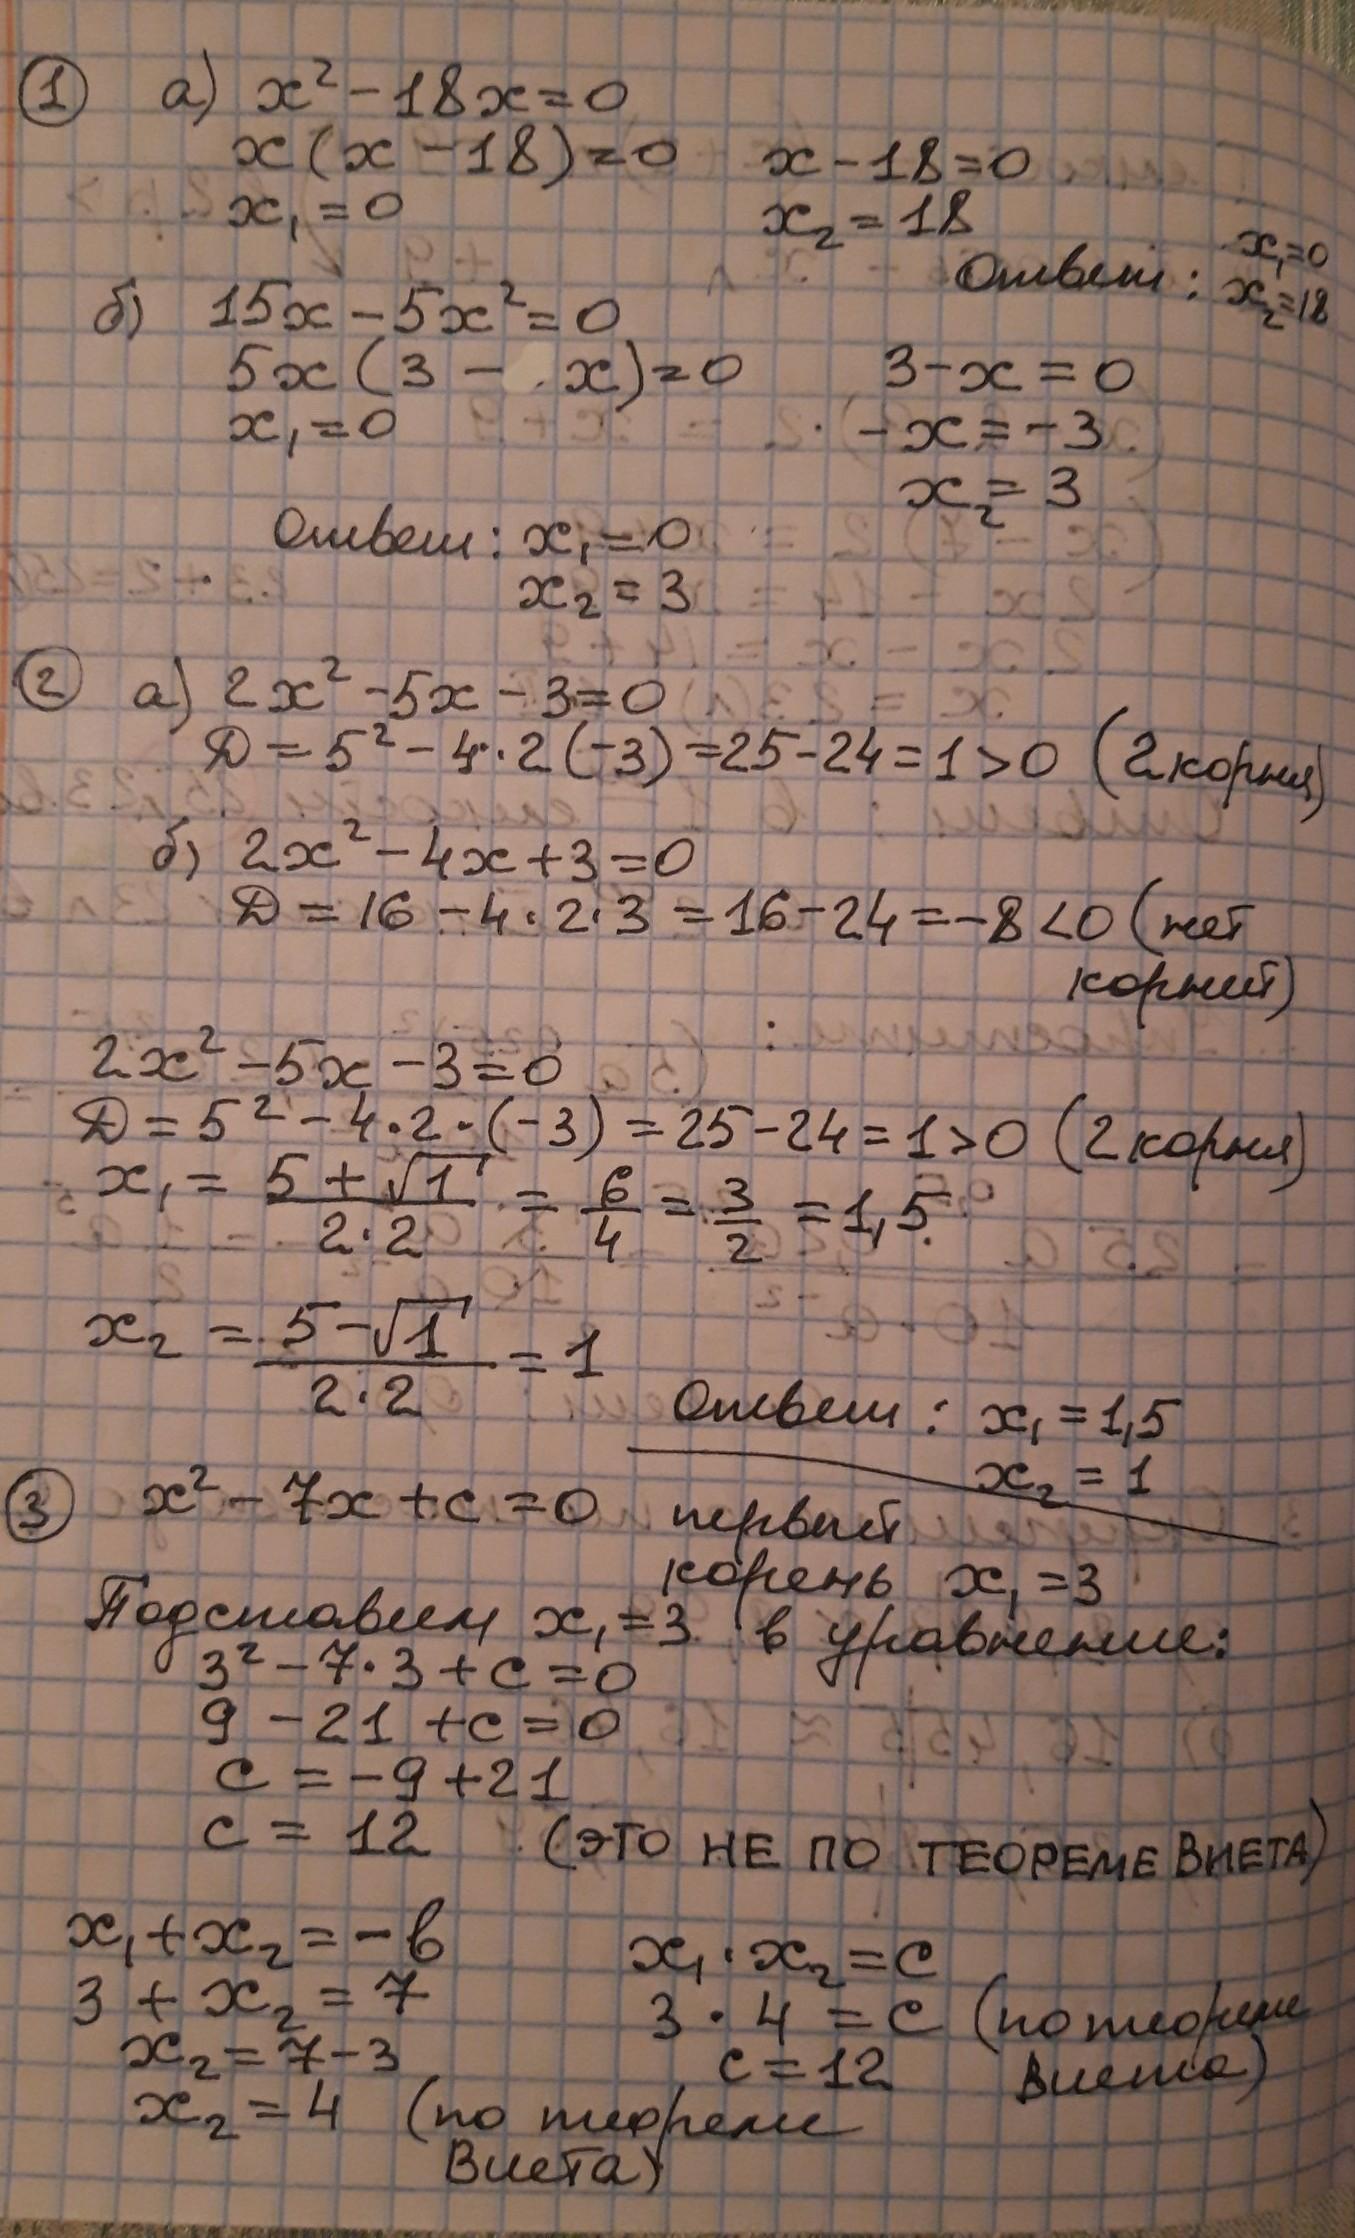 1 а) x² - 18x = 0
x(x - 18) = 0 x - 18 = 0
x₁ = 0 x₂ = 18
Ответ: x₁ = 0
x₂ = 18
б) 15x - 5x² = 0
5x(3 - x) = 0 3 - x = 0
x₁ = 0 -x = -3
x₂ = 3
Ответ: x₁ = 0
x₂ = 3
2 а) 2x² - 5x - 3 = 0
Д = 5² - 4·2(-3) = 25 - 24 = 1 > 0 (2 корня)
б) 2x² - 4x + 3 = 0
Д = 16 - 4·2·3 = 16 - 24 = -8 < 0 (нет
корний)
2x² - 5x - 3 = 0
Д = 5² - 4·2·(-3) = 25 - 24 = 1 > 0 (2 корня)
x₁ = (5 + √1)/(2·2) = 6/4 = 3/2 = 1,5
x₂ = (5 - √1)/(2·2) = 1
Ответ: x₁ = 1,5
x₂ = 1
3 x² - 7x + c = 0 первый
корень x₁ = 3
Подставим x₁ = 3 в уравнение:
3² - 7·3 + c = 0
9 - 21 + c = 0
c = -9 + 21
c = 12 (ЭТО НЕ ПО ТЕОРЕМЕ ВИЕТА)
x₁ + x₂ = -в x₁ · x₂ = c
3 + x₂ = 7 3 · 4 = c (по теореме
x₂ = 7 - 3 c = 12 Виета)
x₂ = 4 (по теореме
Виета)